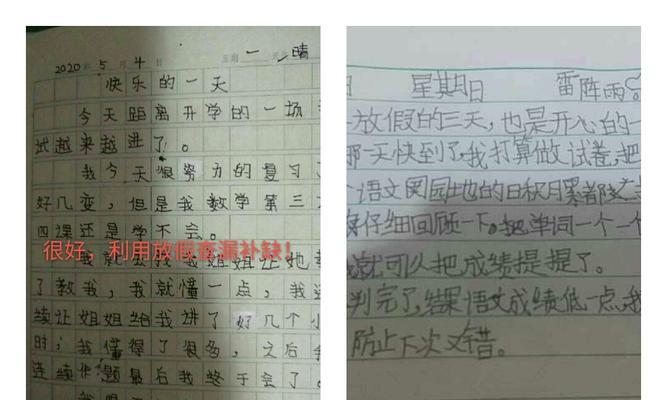 2020年5月4日 星期一 晴
快乐的一天
今天距离开学的一场
试越来越进了。
我今天很努力的复习了
好几变，但是我数学第三
四课还是学不会。
很好，利用放假查漏补缺！
我就去找我姐姐让她
了教我，我就懂一点，我
续让姐姐给我讲了好几个小
时，我懂得了很多，之后
连续作题最后我终于会了。
星期日 雷阵雨
放假的三天，也是开心的一
那一天快到了，我打算做试卷，把
语文园园地的日积月累都
仔细回顾一下。把单词一个一个
就可以把成绩提提了。
判完了，结果语文成绩低一点，我
防止下次又错。